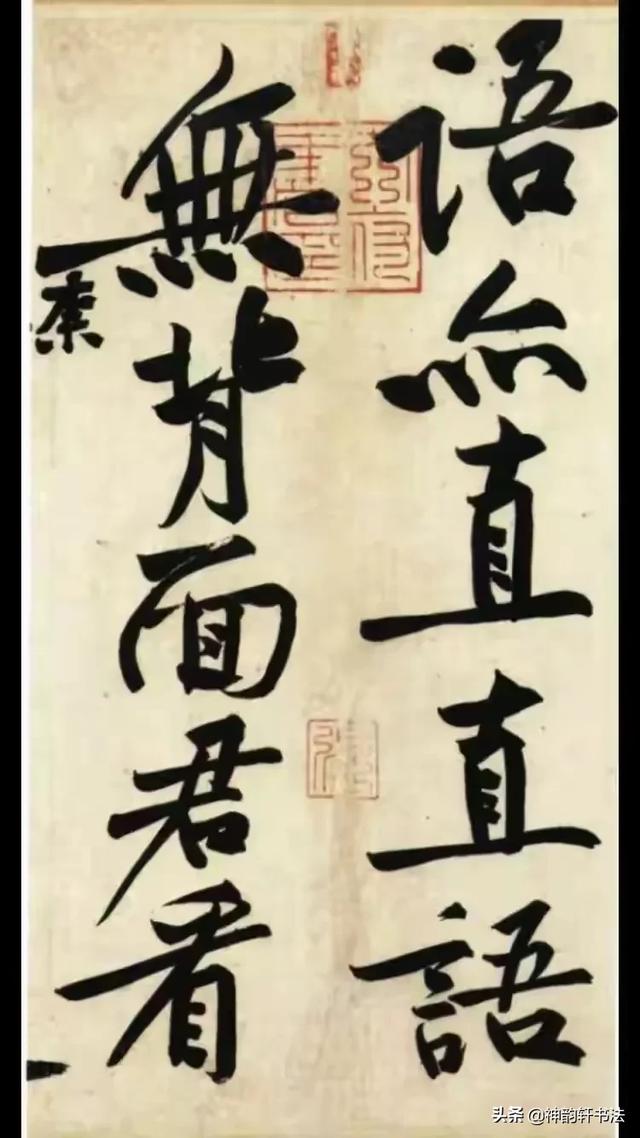 语亦直直語
無背面君看
头条 @神韵轩书法